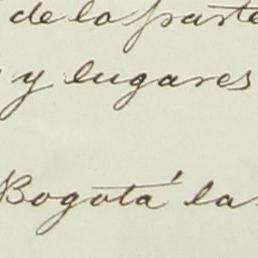 de la parte
y lugares
Bogotá la